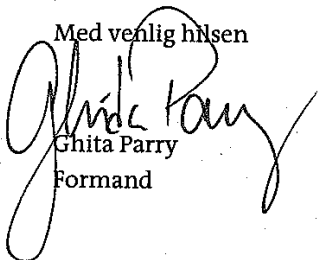 Med venlig hilsen
Ghita Parry
Ghita Parry
Formand